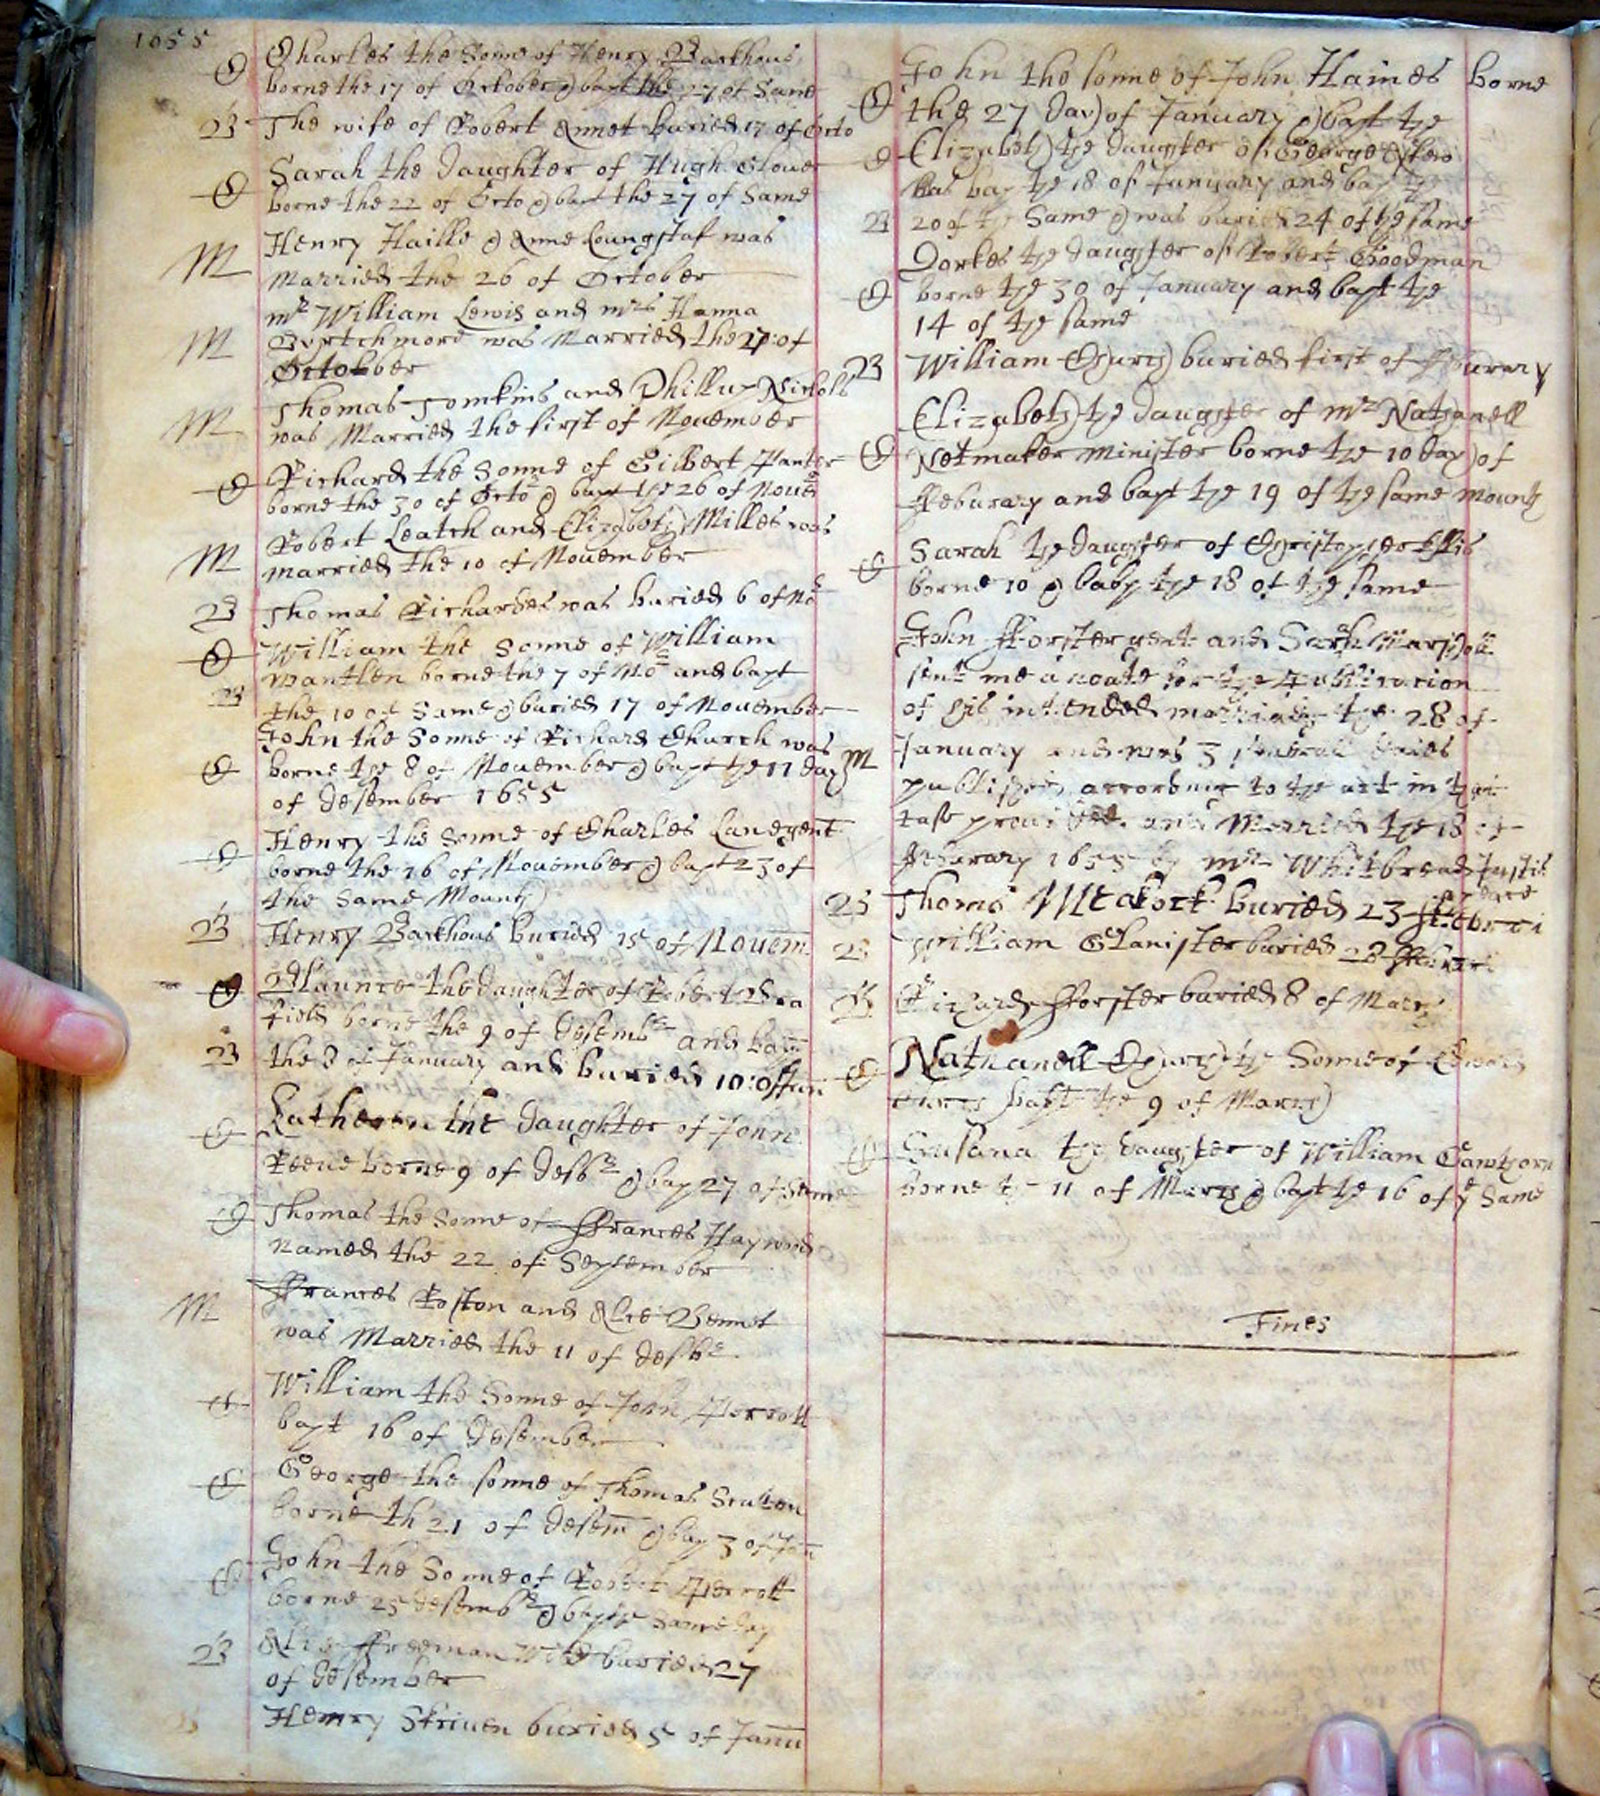 1655
Charles the Sonne of Henry Backhous
borne the 17 of October & bapt the 27 of Same
B The wife of Robert Annet Buried 17 of Octo
Sarah the daughter of Hugh Glouer
borne the 22 of Octo & bapt the 27 of Same
Henry Haille & Anne Loungstaf was
M Married the 26 of October
mr William Lewis and mrs Hanna
M was Married the 27 of
October
Thomas Tomkins and Phillup Nicholls
M was Married the first of Nouember
Richard the Sonne of Gilbert Panter
borne the 30 of Octo & bapt the 26 of Noue
Robert Leatch and Elizabeth Milles was
M married the 10 of Nouember
B Thomas Richardes was buried 6 of No
William the Sonne of William
Wantlen borne the 7 of No and bapt
B the 10 of Same & buried 17 of Nouember
John the Sonne of Richard Church was
borne the 8 of Nouember & bapt the 11 day
of desember 1655
Henry the Sonne of Charles Lane gent
borne the 16 of Nouember & bapt 23 of
the Same Mounth
B Henry Backhous buried 15 of Nouem
the daughter of Robert
field borne the 9 of desembr and bapt
B the 8 of January and buried 10 of Jan
Katheren the daughter of John
Keene borne 9 of desbr & bap 27 of Same
Thomas the Sonne of Frances Haywood
named the 22 of September
Frances Poston and Alce Bennet
M was Married the 11 of desbr
William the Sonne of John Perrott
bapt 16 of desember
George the sonne of Thomas
borne th 21 of desem & bap 3 of Jan
John the Sonne of Robert Perrott
borne 25 desembr & bap the Same day
B Alce Freeman Wid buried 27
of desember
B Henry Skriuen buried 5 of Janu
John the sonne of John Haines borne
the 27 day of January & bapt the
Elizabeth the daughter of George
was bap the 18 of January and bap the
B 20 of the Same & was buried 24 of the same
Dorkes the daughter of Robert Goodman
borne the 30 of January and bapt the
14 of the same
B William Church buried first of Feburary
Elizabeth the daughter of mr Nathanell
Netmaker minister borne the 10 day of
Feburary and bapt the 19 of the same mounth
Sarah the daughter of Christopher Ellis
borne 10 & bapt the 18 of the same
John Forster gent and Sarah Marshall
sent me a noate for the Publication
of his intended marriage the 28 of
M January and was 3 seueral daies
published according to the act in that
case prouided and Married the 18 of
Feburary 1655 by mr Whitbread Justis
B Thomas Meacock buried 23 Feburari
B William Glanister buried 28 Feburari
B Richard Forster buried 8 of March
Nathanell Church the Sonne of Edward
bapt the 9 of March
Susana the daughter of William Cawthorn
borne the 11 of March & bapt the 16 of ye Same
Fines